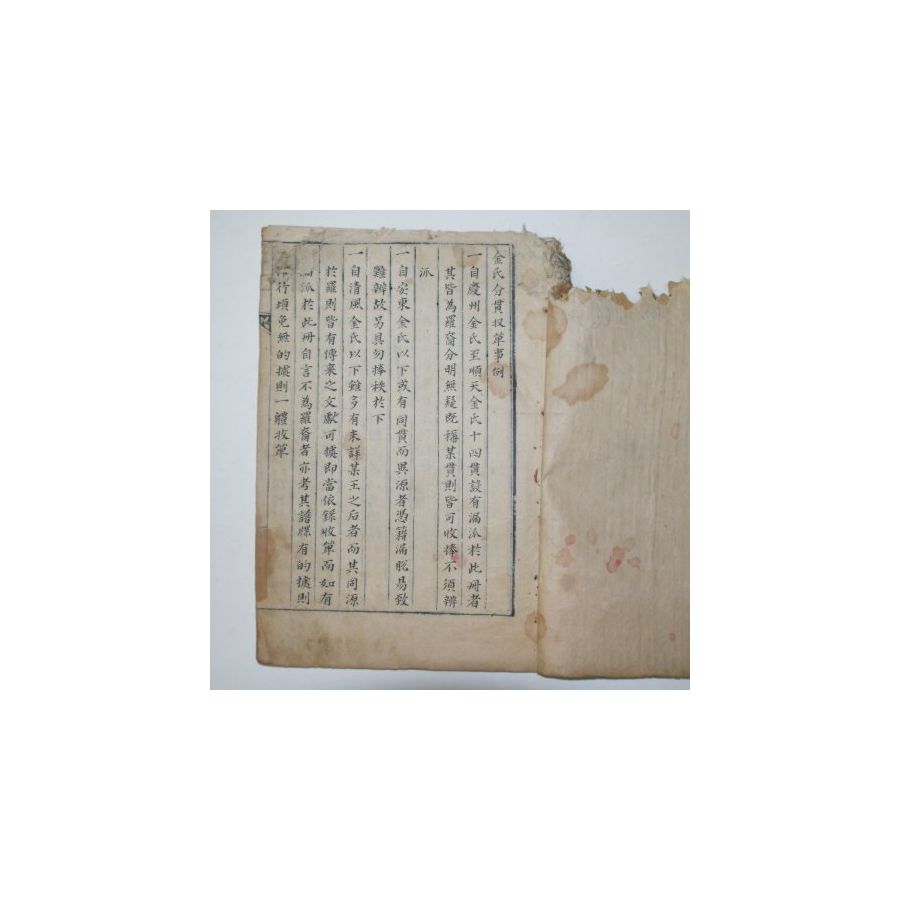 金氏分貫収單事例
一自慶州金氏至順天金氏十四貫設有漏派於此冊者
其皆為羅裔分明無疑旣稱某貫則皆可收捧不須辨
派
一自安東金氏以下或有同貫而異源者憑籍漏脫易致
難辨故另具勿捧秩於下
一自淸風金氏以下雖多有未詳某王之后者而其同源
於羅則皆有傳來之文獻可據即當依錄收單而如有
派於此冊自言不為羅裔者亦考其譜牒有的據則
行頉免無的據則一體收單